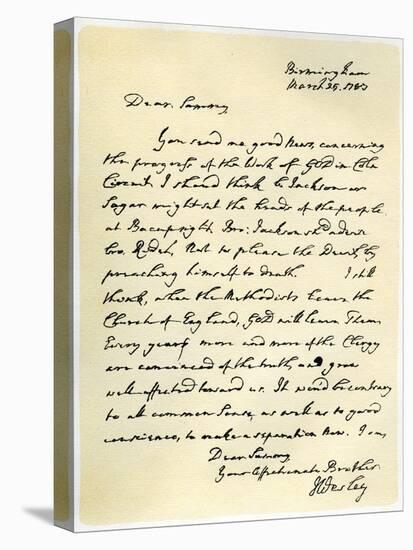 Birmingham
March 25. 1783
Dear Sammy,
You send me good news, concerning
the progress of the Work of GOD in Coln
Circuit. I should think Br Jackson or
Sagar might set the heads of the people
at Bacup right. Bro: Jackson shd advise
bro. Ridel, Not to please the Devil, by
preaching himself to death. I still
think, when the Methodists leave the
Church of England, GOD will leave Them.
Every year more and more of the Clergy
are convinced of the truth, and grow
well-affected toward us. It wd be contrary
to all common Sense, as well as to good
conscience, to make a separation Now. I am,
Dear Sammy
Your Affectionate Brother
J Wesley